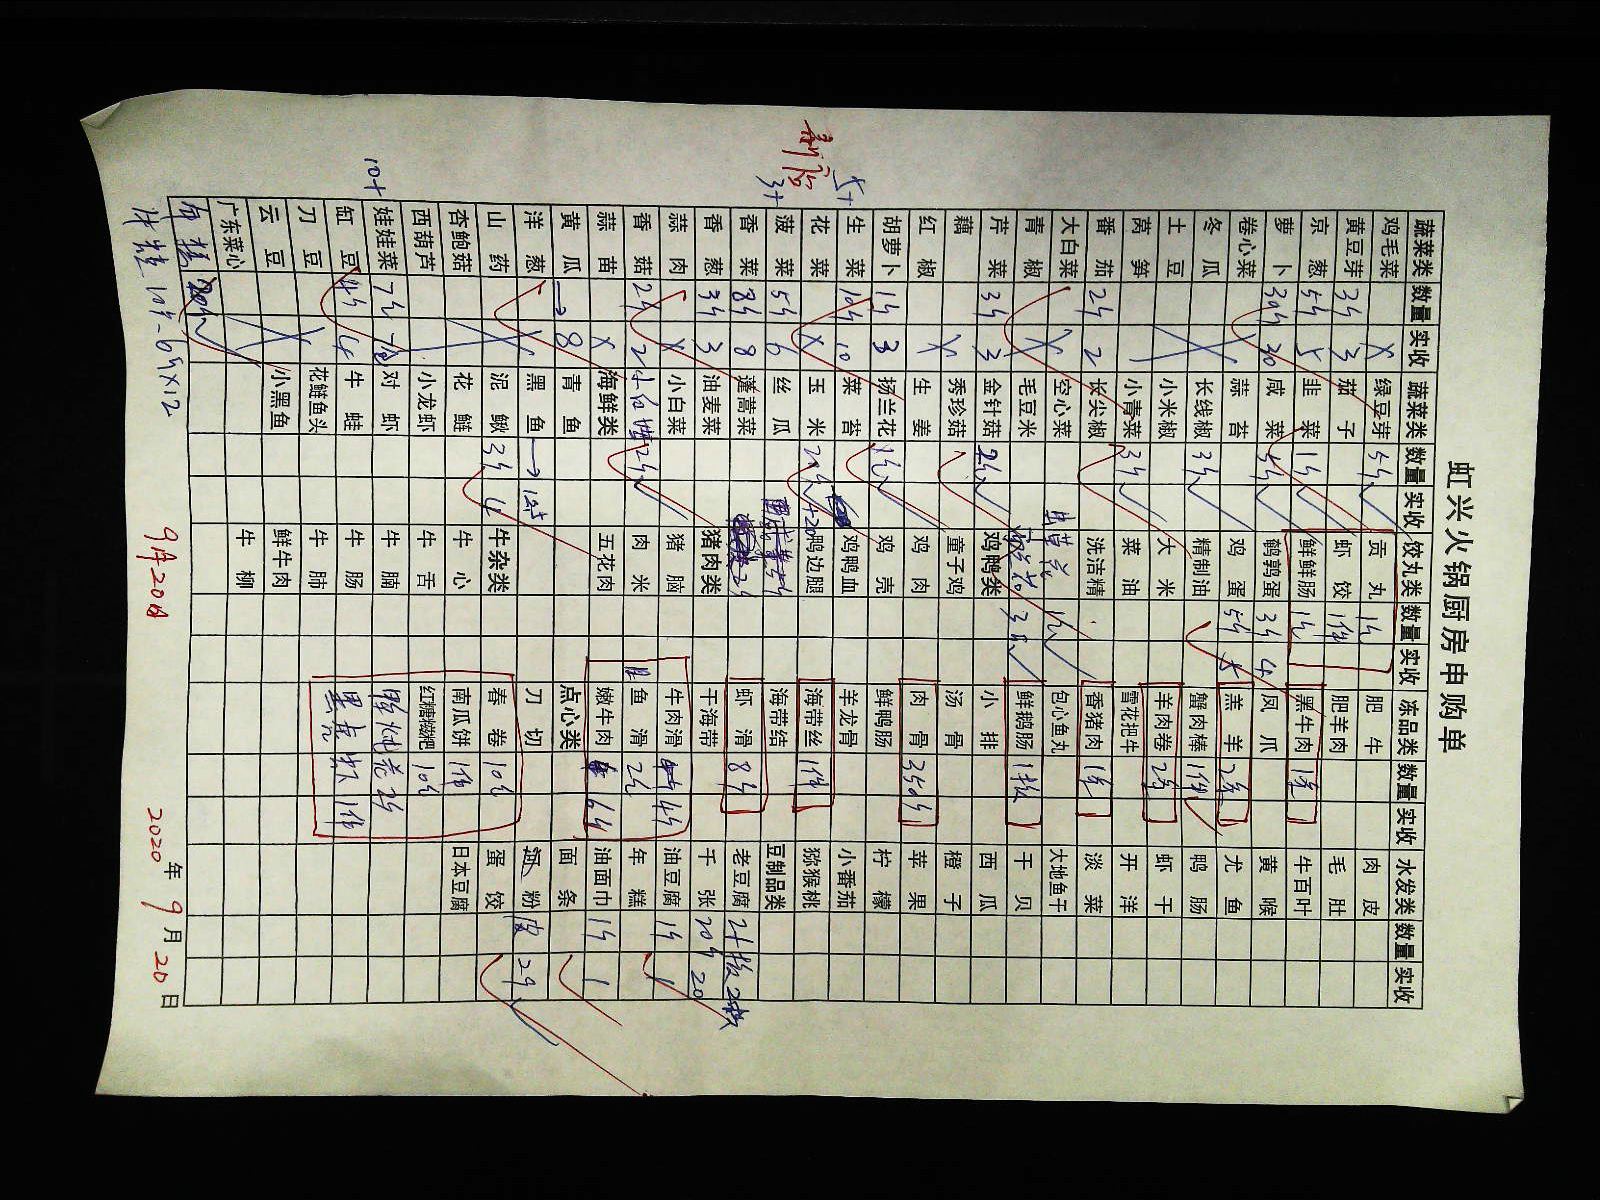 虹兴火锅厨房申购单
蔬菜类 数量 实收 蔬菜类 数量 实收 饺丸类 数量 实收 冻品类 数量 实收 水发类 数量 实收
鸡毛菜 X 绿豆芽 5斤 贡丸 1件 肥牛 肉皮
黄豆芽 3斤 3 茄子 虾饺 1件 肥羊肉 毛肚
京葱 5斤 5 韭菜 1斤 鲜鲜肠 黑牛肉 1条 牛百叶
萝卜 30斤 30 咸菜 5斤 鹌鹑蛋 3斤 4 凤爪 黄喉
卷心菜 蒜苔 鸡蛋 5斤 5 羔羊 2条 尤鱼
冬瓜 长线椒 3斤 精制油 蟹肉棒 1件 鸭肠
土豆 小米椒 大米 羊肉卷 虾干
莴笋 小青菜 3斤 菜油 雪花把牛 开洋
番茄 2斤 2 长尖椒 洗洁精 香猪肉 1条 淡菜
大白菜 空心菜 虫草花 包心鱼丸 大地鱼干
青椒 X 毛豆米 鲜鹅肠 干贝
芹菜 3斤 3 金针菇 2斤 鸡鸭类 小排 西瓜
藕 秀珍菇 童子鸡 汤骨 橙子
红椒 X 生姜 鸡肉 肉骨 苹果
胡萝卜 1斤 3 扬兰花 鸡壳 鲜鸭肠 柠檬
5+ 生菜 10斤 10 菜苔 鸡鸭血 羊龙骨 小番茄
新店 花菜 X 玉米 鸭边腿 海带丝 1件 猕猴桃
3+ 菠菜 5斤 6 丝瓜 海带结 豆制品类
香菜 8斤 8 蓬蒿菜 虾滑 8斤 老豆腐 2板
香葱 3斤 3 油麦菜 猪肉类 干海带 千张 20斤 20
蒜肉 X 小白菜 猪脑 牛肉滑 4斤 油豆腐 1斤
香菇 2斤 2 2斤 肉米 鱼滑 2斤 年糕
蒜苗 X 海鲜类 五花肉 嫩牛肉 6斤 油面巾 1斤 1
黄瓜 → 8 青鱼 点心类 面条
洋葱 X 黑鱼 → 刀切 粉
山药 泥鳅 3斤 4 牛杂类 春卷 蛋饺
杏鲍菇 花鲢 牛心 南瓜饼 1件 日本豆腐
西葫芦 小龙虾 牛舌 红糖糍粑
10+ 娃娃菜 对虾 牛腩
缸豆 4斤 4 牛蛙 牛肠 1件
刀豆 花鲢鱼头 牛肺
云豆 小黑鱼 鲜牛肉
广东菜心 牛柳
9月20日 2020年9月20日